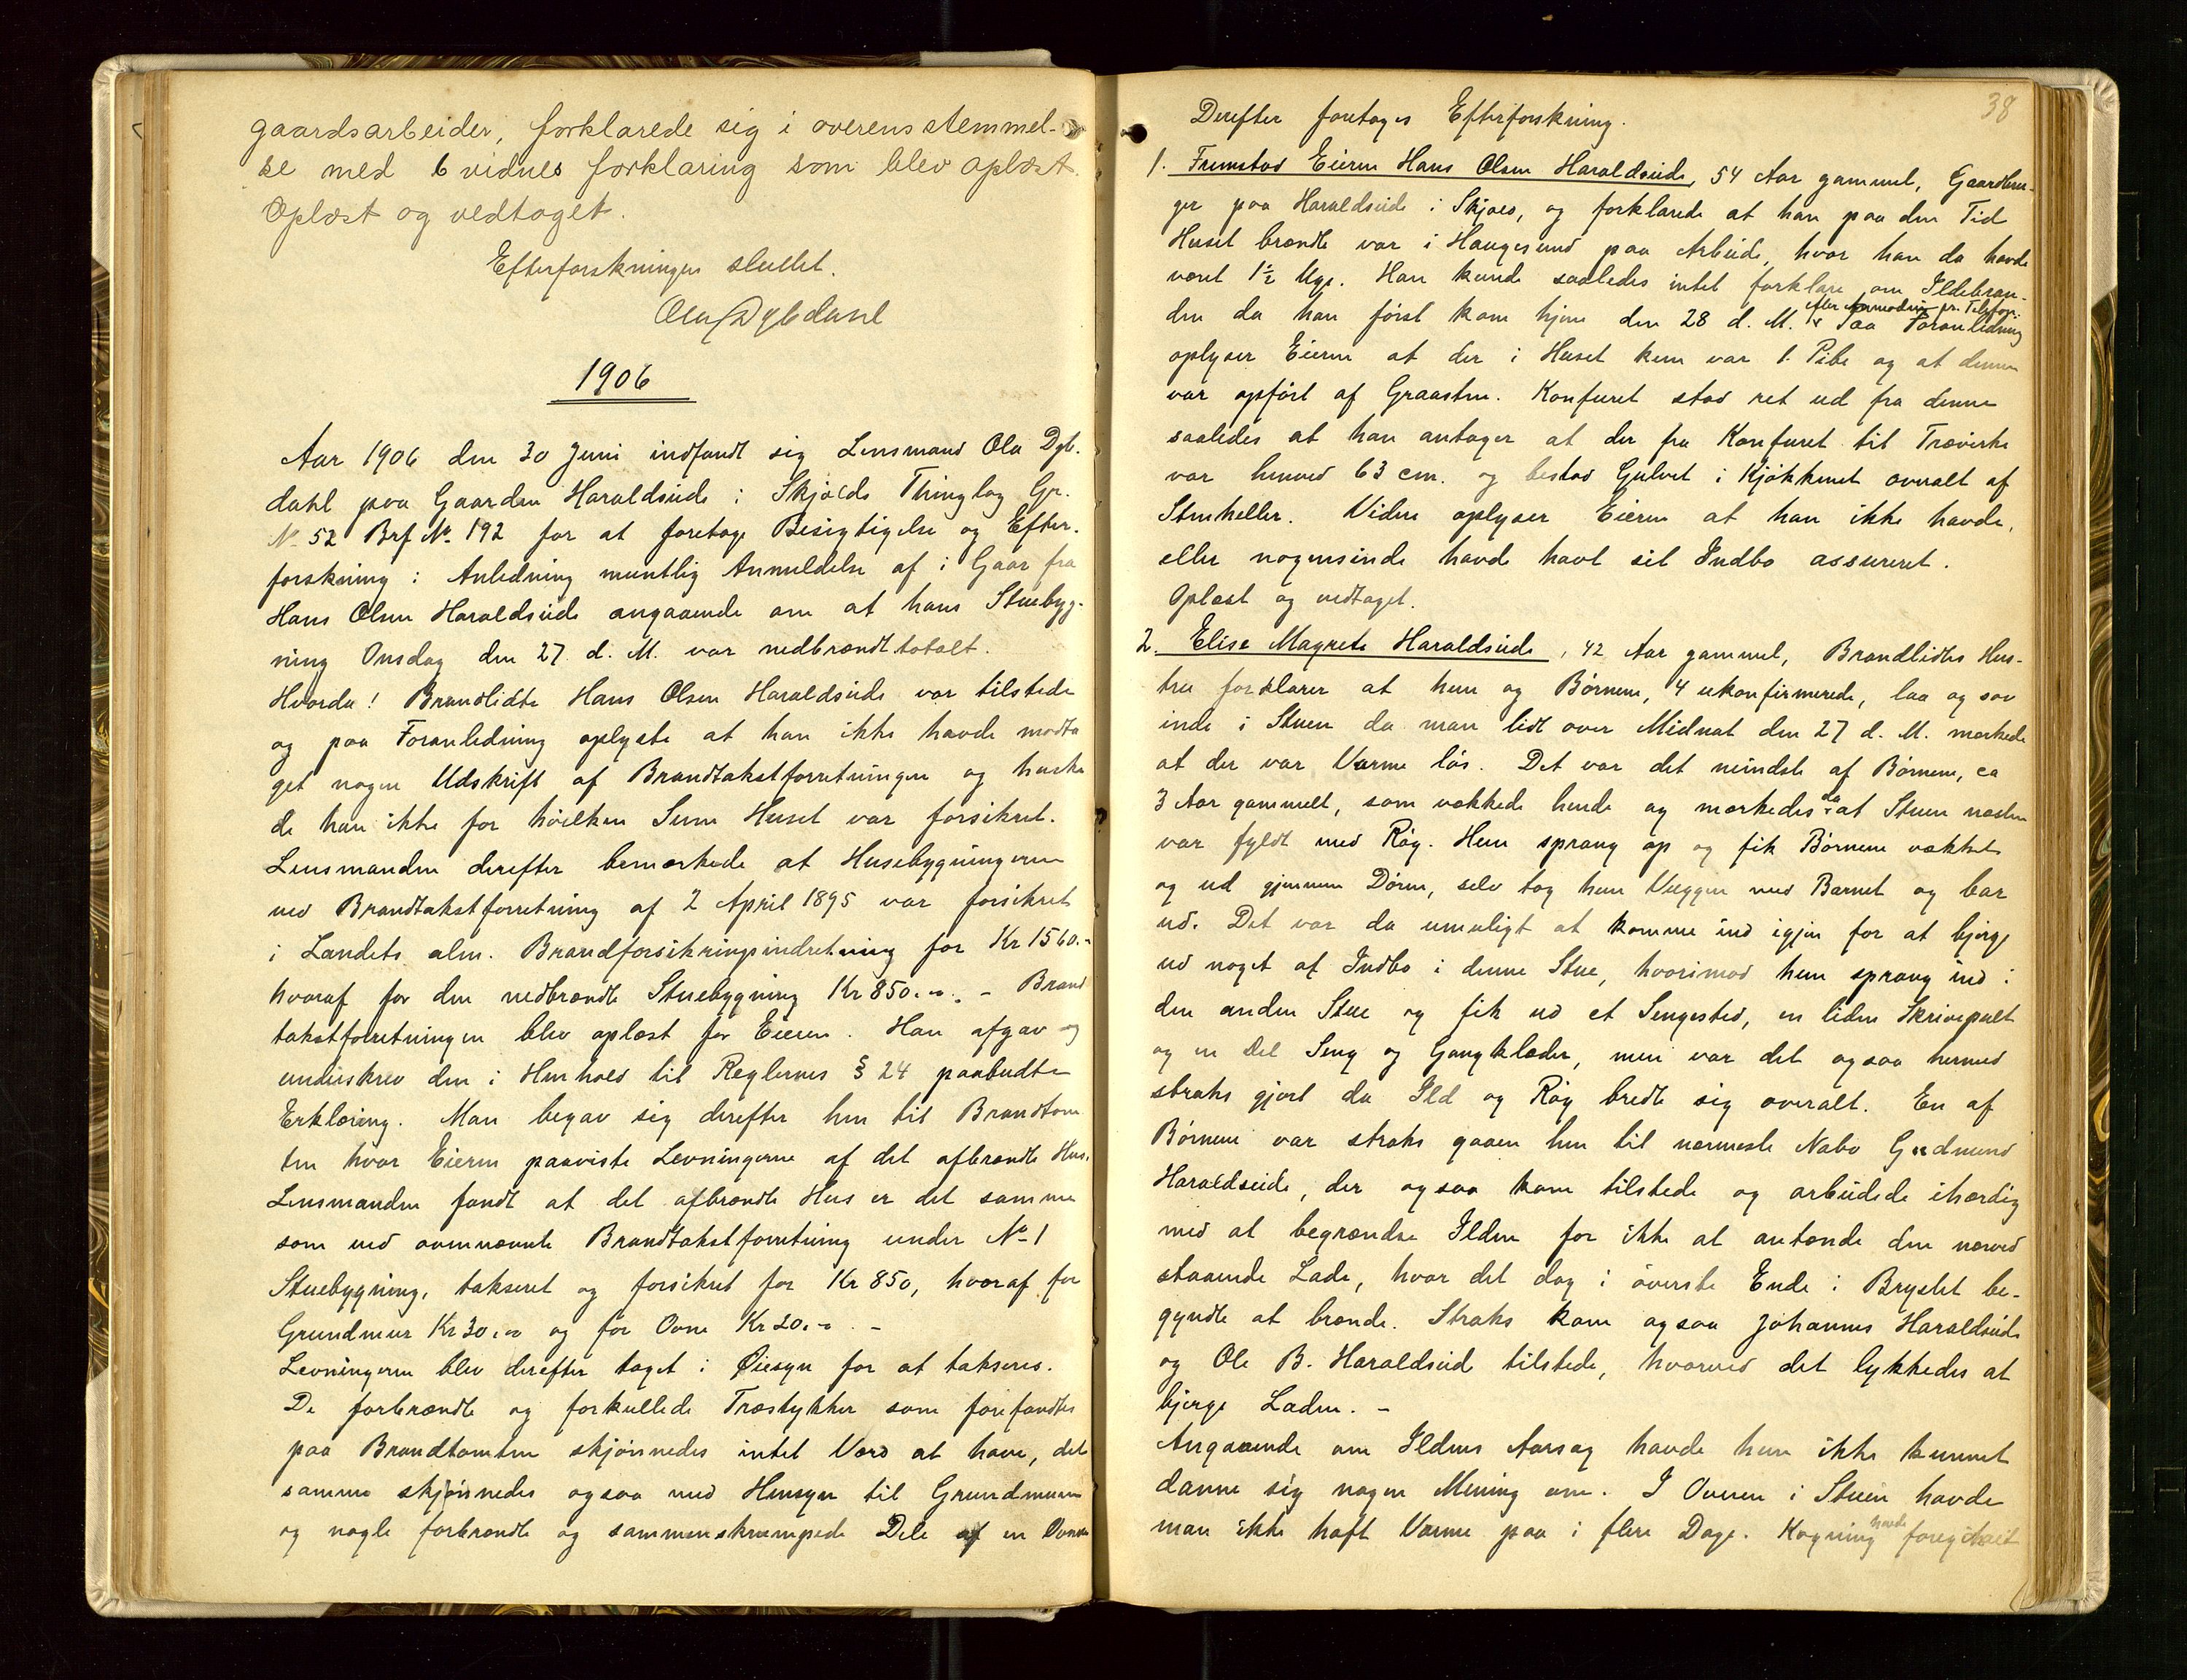 gaardsarbeider, forklarede sig i overensstemmel-
se med 6 vidnes forklaring som blev oplæst.
Oplæst og vedtaget.
Efterforskningen sluttet.
Ola Dybdahl
1906
Aar 1906 den 30 Juni indfandt sig Lensmand Ola Dyb-
dahl paa Gaarden Haraldseide i Skjolds Thinglag Gr.
No 52 Brf No 192 for at foretage Besigtigelse og Efter-
forskning i Anledning muntlig Anmeldelse af i Gaar fra
Hans Olsen Haraldseide angaaende om at hans Stuebyg-
ning Onsdag den 27 d. M. var nedbrændt totalt.
Hvorda! Brandlidte Hans Olsen Haraldseide var tilstede
og paa Foranledning oplyste at han ikke havde modta
get nogen Udskrift af Brandtakstforretningen og huske
de han ikke for hvilken Sum Huset var forsikret.
Lensmanden derefter bemærkede at Husebygningerne
ved Brandtakstforretning af 2 April 1895 var forsikret
i Landets alm. Brandforsikringsindretning for Kr 1560.-
hvoraf for den nedbrændte Stuebygning Kr 850.-. - Brand
takstforretningen blev oplæst for Eieren. Han afgav og
underskrev den i Henhold til Reglernes § 24 paabudte
Erklæring. Man begav sig derefter hen til Brandtom
ten hvor Eieren paaviste Levningerne af det afbrændte Hus.
Lensmanden fandt at det afbrændte Hus er det samme
som ved ovennævnte Brandtakstforretning under No 1
Stuebygning, takseret og forsikret for Kr 850, hvoraf for
Grundmur Kr 30.- og for Ovne Kr 20.- . -
Levningerne blev derefter taget i Øiesyn for at takseres.
De forbrændte og forkullede Træstykker som forefandtes
paa Brandtomten skjønnedes intet Værd at have, det
samme skjønnedes ogsaa med Hensyn til Grundmuren
og nogle forbrændte og sammenskrumpede Dele af en Ovn
38
Derefter foretages Efterforskning.
1. Fremstod Eieren Hans Olsen Haraldseide, 54 Aar gammel, Gaardbru-
ger paa Haraldseide i Skjold, og forklarede at han paa den Tid
Huset brændte var i Haugesund paa Arbeide, hvor han da havde
været 1½ Uge. Han kunde saaledes intet forklare om Ildebran-
efter Anmodning pr. Telefon.
den da han først kom hjem den 28 d. M. Paa Foranledning
oplyser Eieren at der i Huset kun var 1 Pibe og at denne
var opført af Graasten. Komfuret stod ret ud fra denne
saaledes at han antager at der fra Komfuret til Træverke
var henved 63 cm. og bestod Gulvet i Kjøkkenet overalt af
Stenheller. Videre oplyser Eieren at han ikke havde,
eller nogensinde havde havt sit Indbo assureret.
Oplæst og vedtaget.
2. Elise Magrete Haraldseide, 42 Aar gammel, Brandlidtes Hus-
tru forklarer at hun og Børnene, 4 ukonfirmerede, laa og sov
inde i Stuen da man lidt over Midnat den 27 d. M. mærkede
at der var Varme løs. Det var det mindste af Børnene, ca
3 Aar gammelt, som vækkede hende og mærkedes da at Stuen næsten
var fyldt med Røg. Hun sprang op og fik Børnene vækket
og ud gjennem Døren, selv tog hun Vuggen med Barnet og bar
ud. Det var da umuligt at komme ind igjen for at bjerge
ud noget af Indbo i denne Stue, hvorimod hun sprang ind i
den anden Stue og fik ud et Sengested, en liden Skrivepult
og en Del Seng og Gangklæder, men var det ogsaa hermed
straks gjort da Ild og Røg bredte sig overalt. En af
Børnene var straks gaaen hen til nærmeste Nabo Gudmund
Haraldseide, der ogsaa kom tilstede og arbeidede ihærdig
med at begrændse Ilden for ikke at antænde den nærved
staaende Lade, hvor det dog i øverste Ende i Brystet be-
gyndte at brænde. Straks kom ogsaa Johannes Haraldseide
og Ole B. Haraldseid tilstede, hvorved det lykkedes at
bjerge Laden. -
Angaaende om Ildens Aarsag havde hun ikke kunnet
danne sig nogen Mening om. I Ovnen i Stuen havde
man ikke haft Varme paa i flere Dage. Kogning havde foregaaet